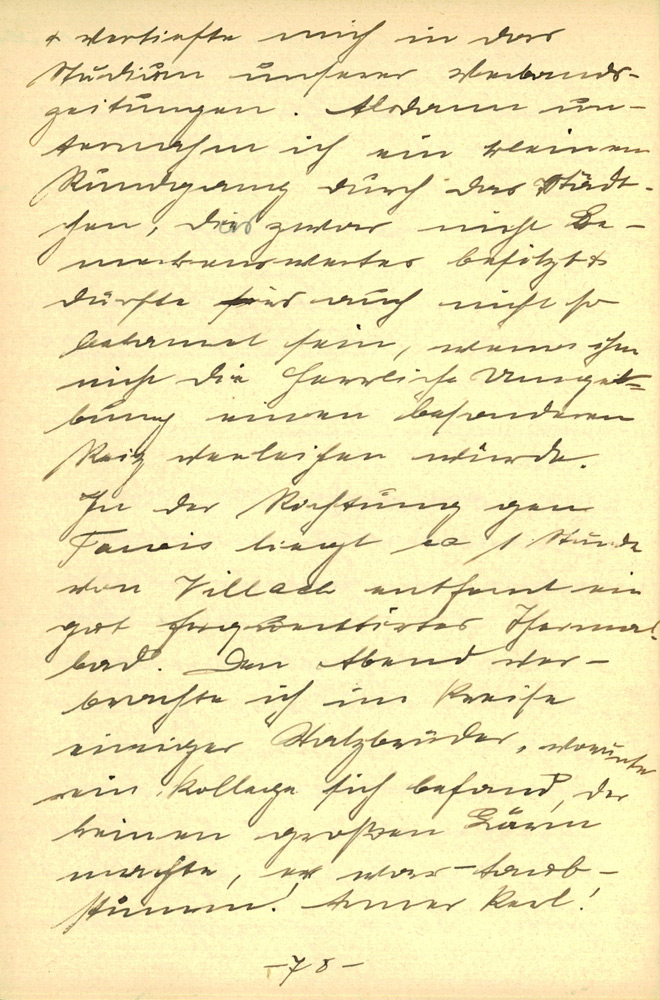 + vertiefte mich in das
Studium unserer Verbands-
zeitungen. Alsdann un-
ternahm ich ein kleinen
Rundgang durch das Städt-
chen, das zwar nicht Be-
merkenswertes besitzt +
dürfte es auch nicht so
bekannt sein, wenn ihm
nicht die herrliche Umge-
bung einen besonderen
Reiz verleihen würde.
In der Richtung gen
Tarvis liegt ca 1 Stunde
von Villach entfernt ein
gut frequentirtes Thermal-
bad. Den Abend ver-
brachte ich im Kreise
einiger Walzbrüder, worunter
ein Kollege sich befand, der
keinen großen Lärm
machte, er war taub-
stumm! Armer Kerl!
-78-